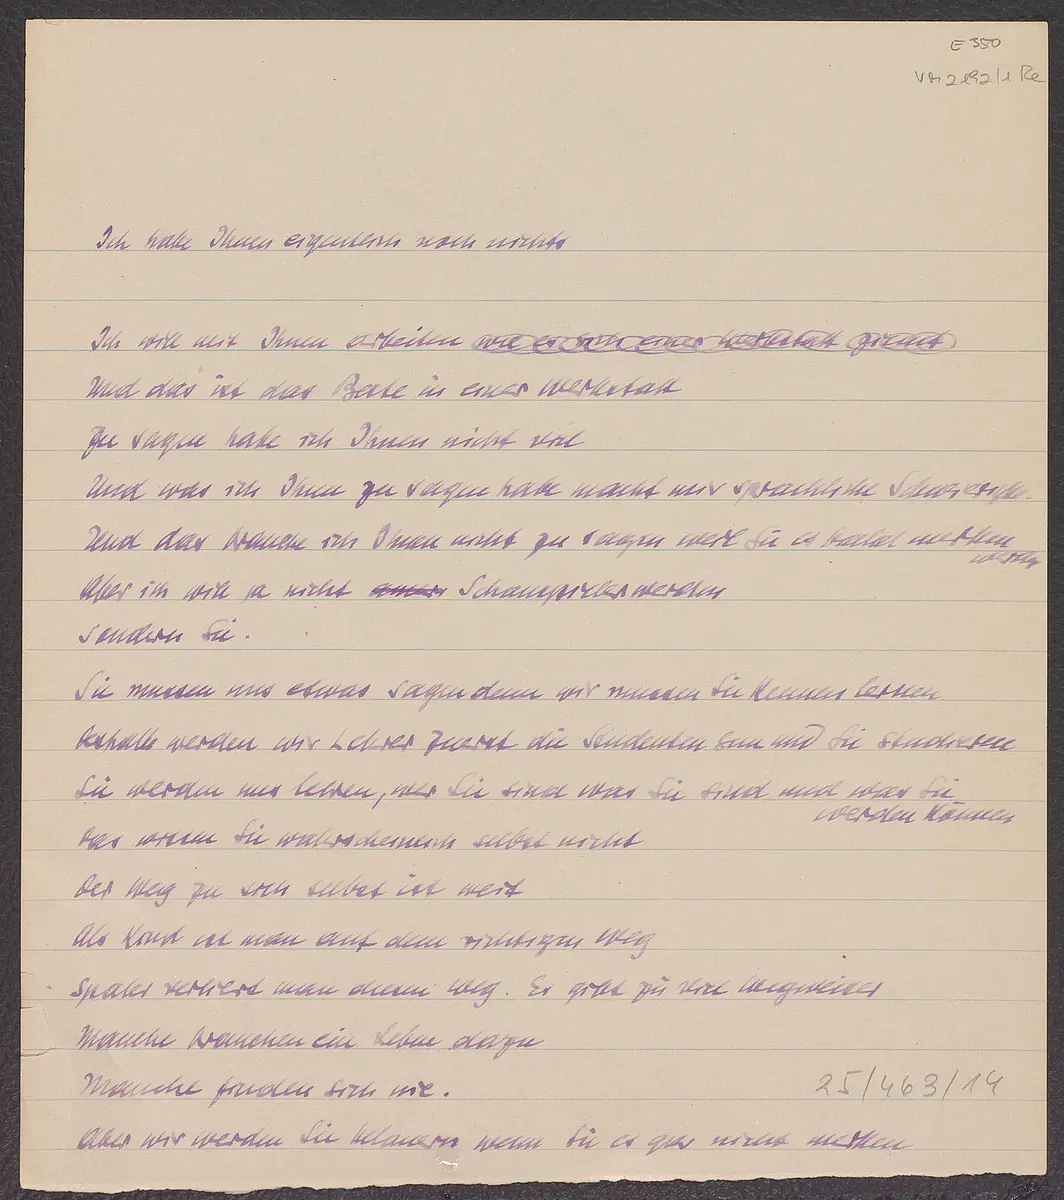 E 350
2192/1 Re
Ich habe Ihnen eigentlich noch nichts
Ich will mit Ihnen arbeiten wie es sich einer Werkstatt ziemt
Und das ist das Beste in einer Werkstatt
Zu sagen habe ich Ihnen nicht viel
Und was ich Ihnen zu sagen habe macht mir sprachliche
Und das brauche ich Ihnen nicht zu sagen weil Sie es bald merken
werden
Aber ich will ja nicht Schauspieler werden
sondern Sie.
Sie mussen uns etwas sagen denn wir mussen Sie kennen lernen
Deshalb werden wir Lehrer zuerst die Studenten sein und Sie studieren
Sie werden uns lehren, wer Sie sind was Sie sind und was Sie
werden können
Das wissen Sie wahrscheinlich selbst nicht
Der Weg zu sich selbst ist weit
Als Kind ist man auf dem richtigen Weg
Später verliert man diesen Weg. Es gibt zu viel Wegweiser
Manche brauchen ein Leben dazu
Manche finden sich nie.
25/463/14
Aber wir werden Sie belauern wenn Sie es gar nicht merken